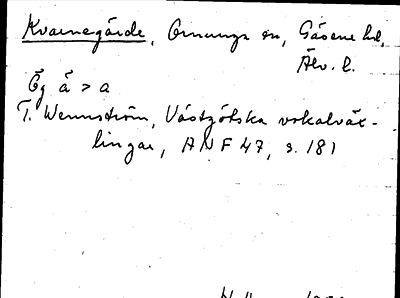 Kvarnegärde, Ornunga sn, Gäsene hd,
Älv. l.
Eg å > a
T. Wennström, Västgötska vokalväx-
lingar, ANF 47, s. 181